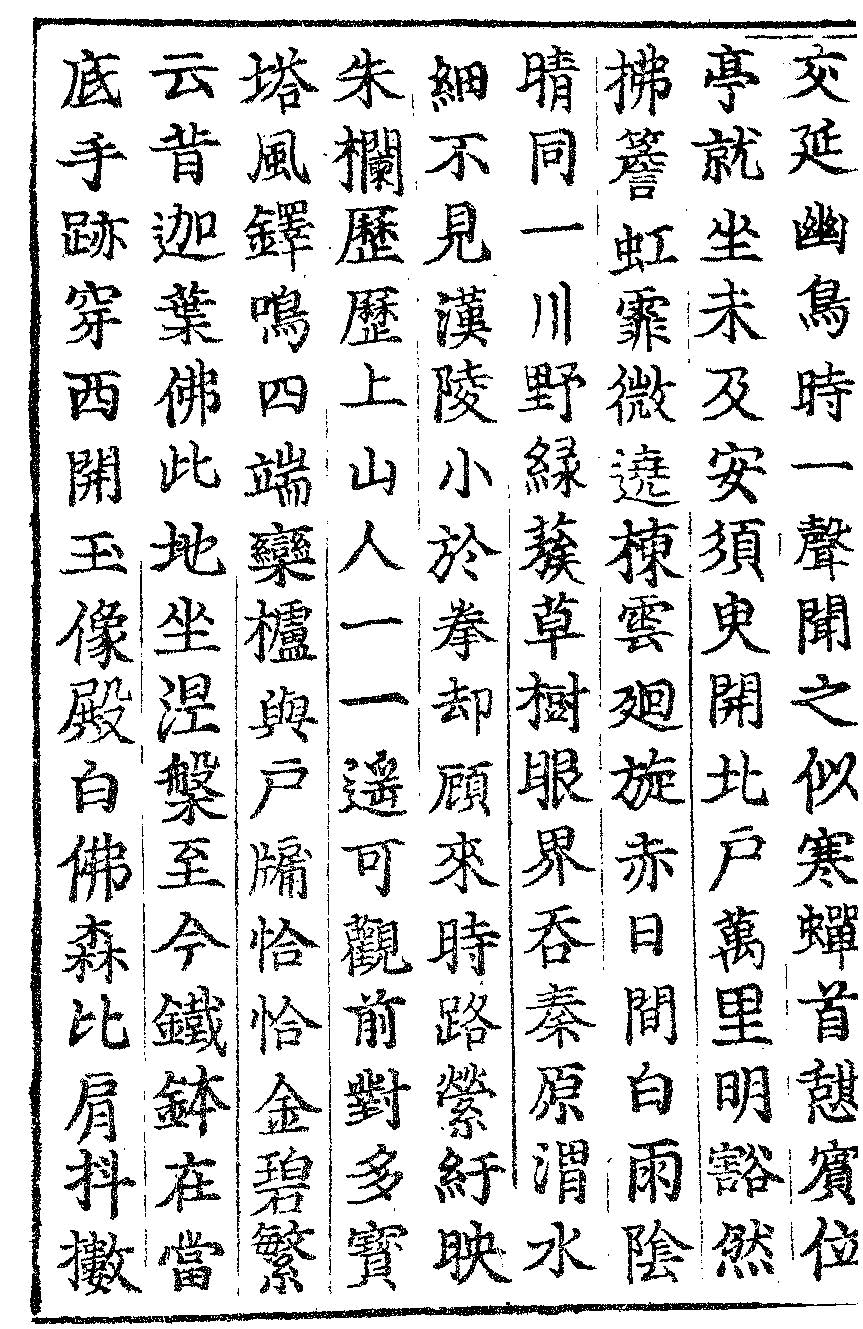 交延幽鳥時一聲聞之似寒蟬首憇賓位
亭就坐未及安須臾開北戶萬里明豁然
拂簷虹霏微遶棟雲廻旋赤日間白雨陰
晴同一川野綠蔟草樹眼界吞秦原渭水
細不見漢陵小於拳却顧來時路縈紆映
朱欄歷歷上山人一一遥可觀前對多寶
塔風鐸鳴四端欒櫨與戶牖恰恰金碧繁
云昔迦葉佛此地坐涅槃至今鐵鉢在當
底手跡穿西開玉像殿白佛森比肩抖擻